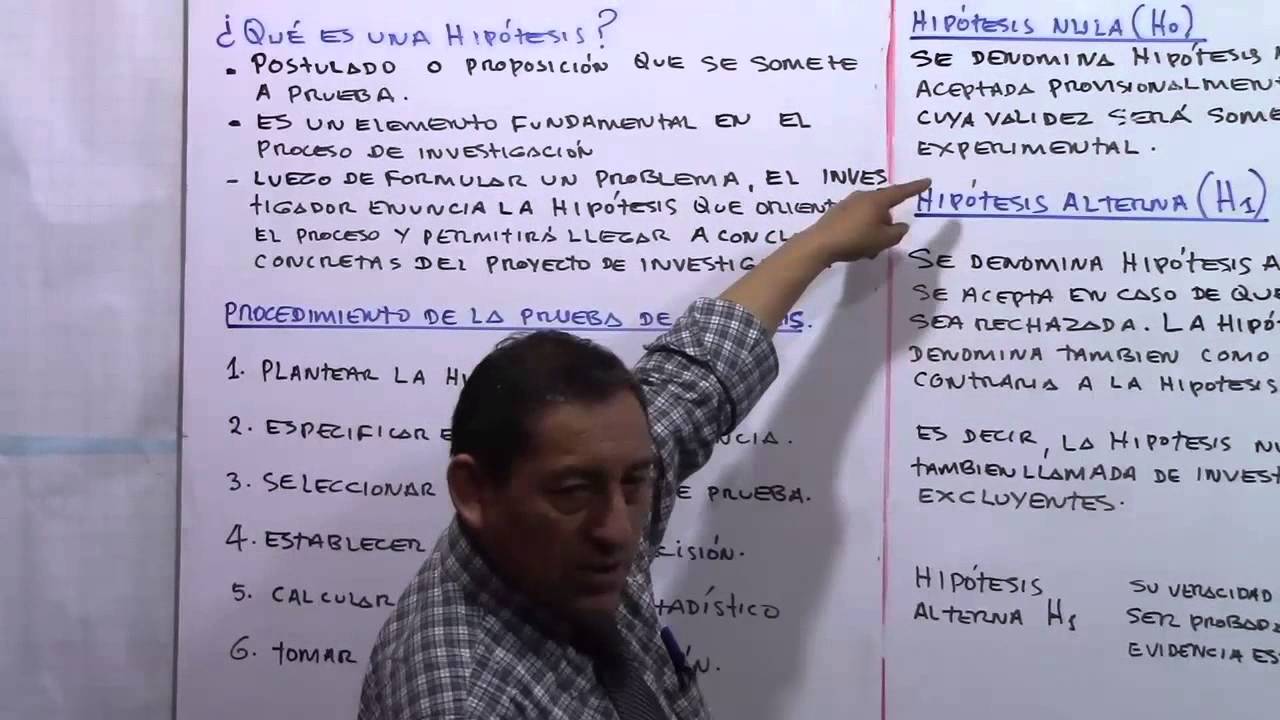 ¿QUÉ ES UNA HIPÓTESIS?
• POSTULADO O PROPOSICIÓN QUE SE SOMETE
A PRUEBA.
• ES UN ELEMENTO FUNDAMENTAL EN EL
PROCESO DE INVESTIGACIÓN
- LUEGO DE FORMULAR UN PROBLEMA, EL INVES
TIGADOR ENUNCIA LA HIPÓTESIS QUE ORIENT
EL PROCESO Y PERMITIRÁ LLEGAR A CONCL
CONCRETAS DEL PROYECTO DE INVESTIG
PROCEDIMIENTO DE LA PRUEBA DE IS.
1. PLANTEAR LA H
2. ESPECIFICAR E NCIA.
3. SELECCIONAR E PRUEBA.
4. ESTABLECER CISIÓN.
5. CALCULAR TADÍSTICO
6. TOMAR ÓN.
HIPÓTESIS NULA (H0)
SE DENOMINA HIPÓTESIS
ACEPTADA PROVISIONALMENT
CUYA VALIDEZ SERÁ SOME
EXPERIMENTAL.
HIPÓTESIS ALTERNA (H1)
SE DENOMINA HIPÓTESIS A
SE ACEPTA EN CASO DE QUE
SEA RECHAZADA. LA HIPÓ
DENOMINA TAMBIEN COMO
CONTRARIA A LA HIPOTESIS
ES DECIR, LA HIPOTESIS NU
TAMBIEN LLAMADA DE INVEST
EXCLUYENTES.
HIPÓTESIS
ALTERNA H1
SU VERACIDAD
SER PROBAD
EVIDENCIA ES